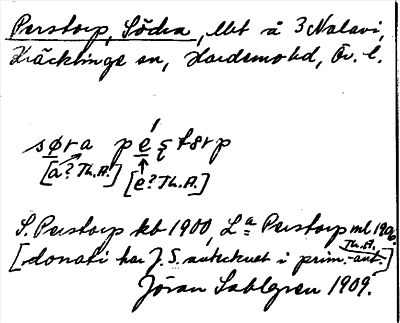 Perstorp, Södra, Mt å 3 Nalavi,
Kräcklinge sn, Hardemo hd, Ör. l.
søra
[a? Th.A.] [e? Th.A.]
S. Perstorp kb 1900, La Perstorp ml 1906.
[donati har J. S. antecknat i prim.
Th.A.]
Jöran Sahlgren 1909.